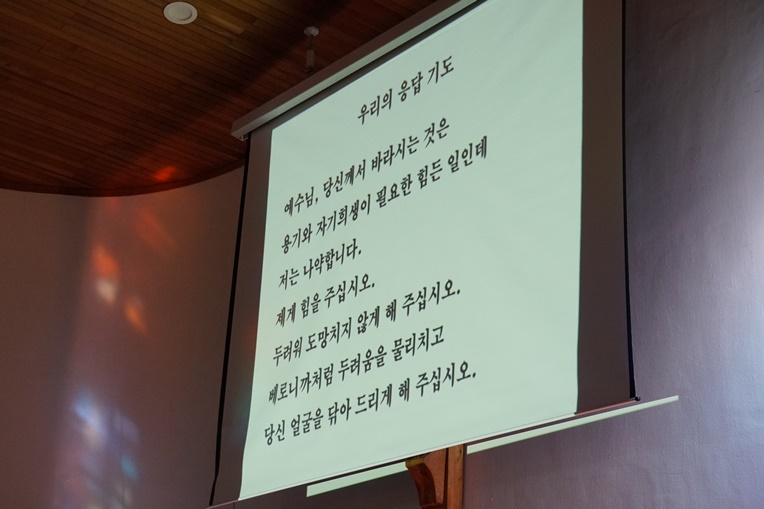 우리의 응답 기도
예수님, 당신께서 바라시는 것은
용기와 자기희생이 필요한 힘든 일인데
저는 나약합니다.
제게 힘을 주십시오.
두려워 도망치지 않게 해 주십시오.
베로니까처럼 두려움을 물리치고
당신 얼굴을 닦아 드리게 해 주십시오.